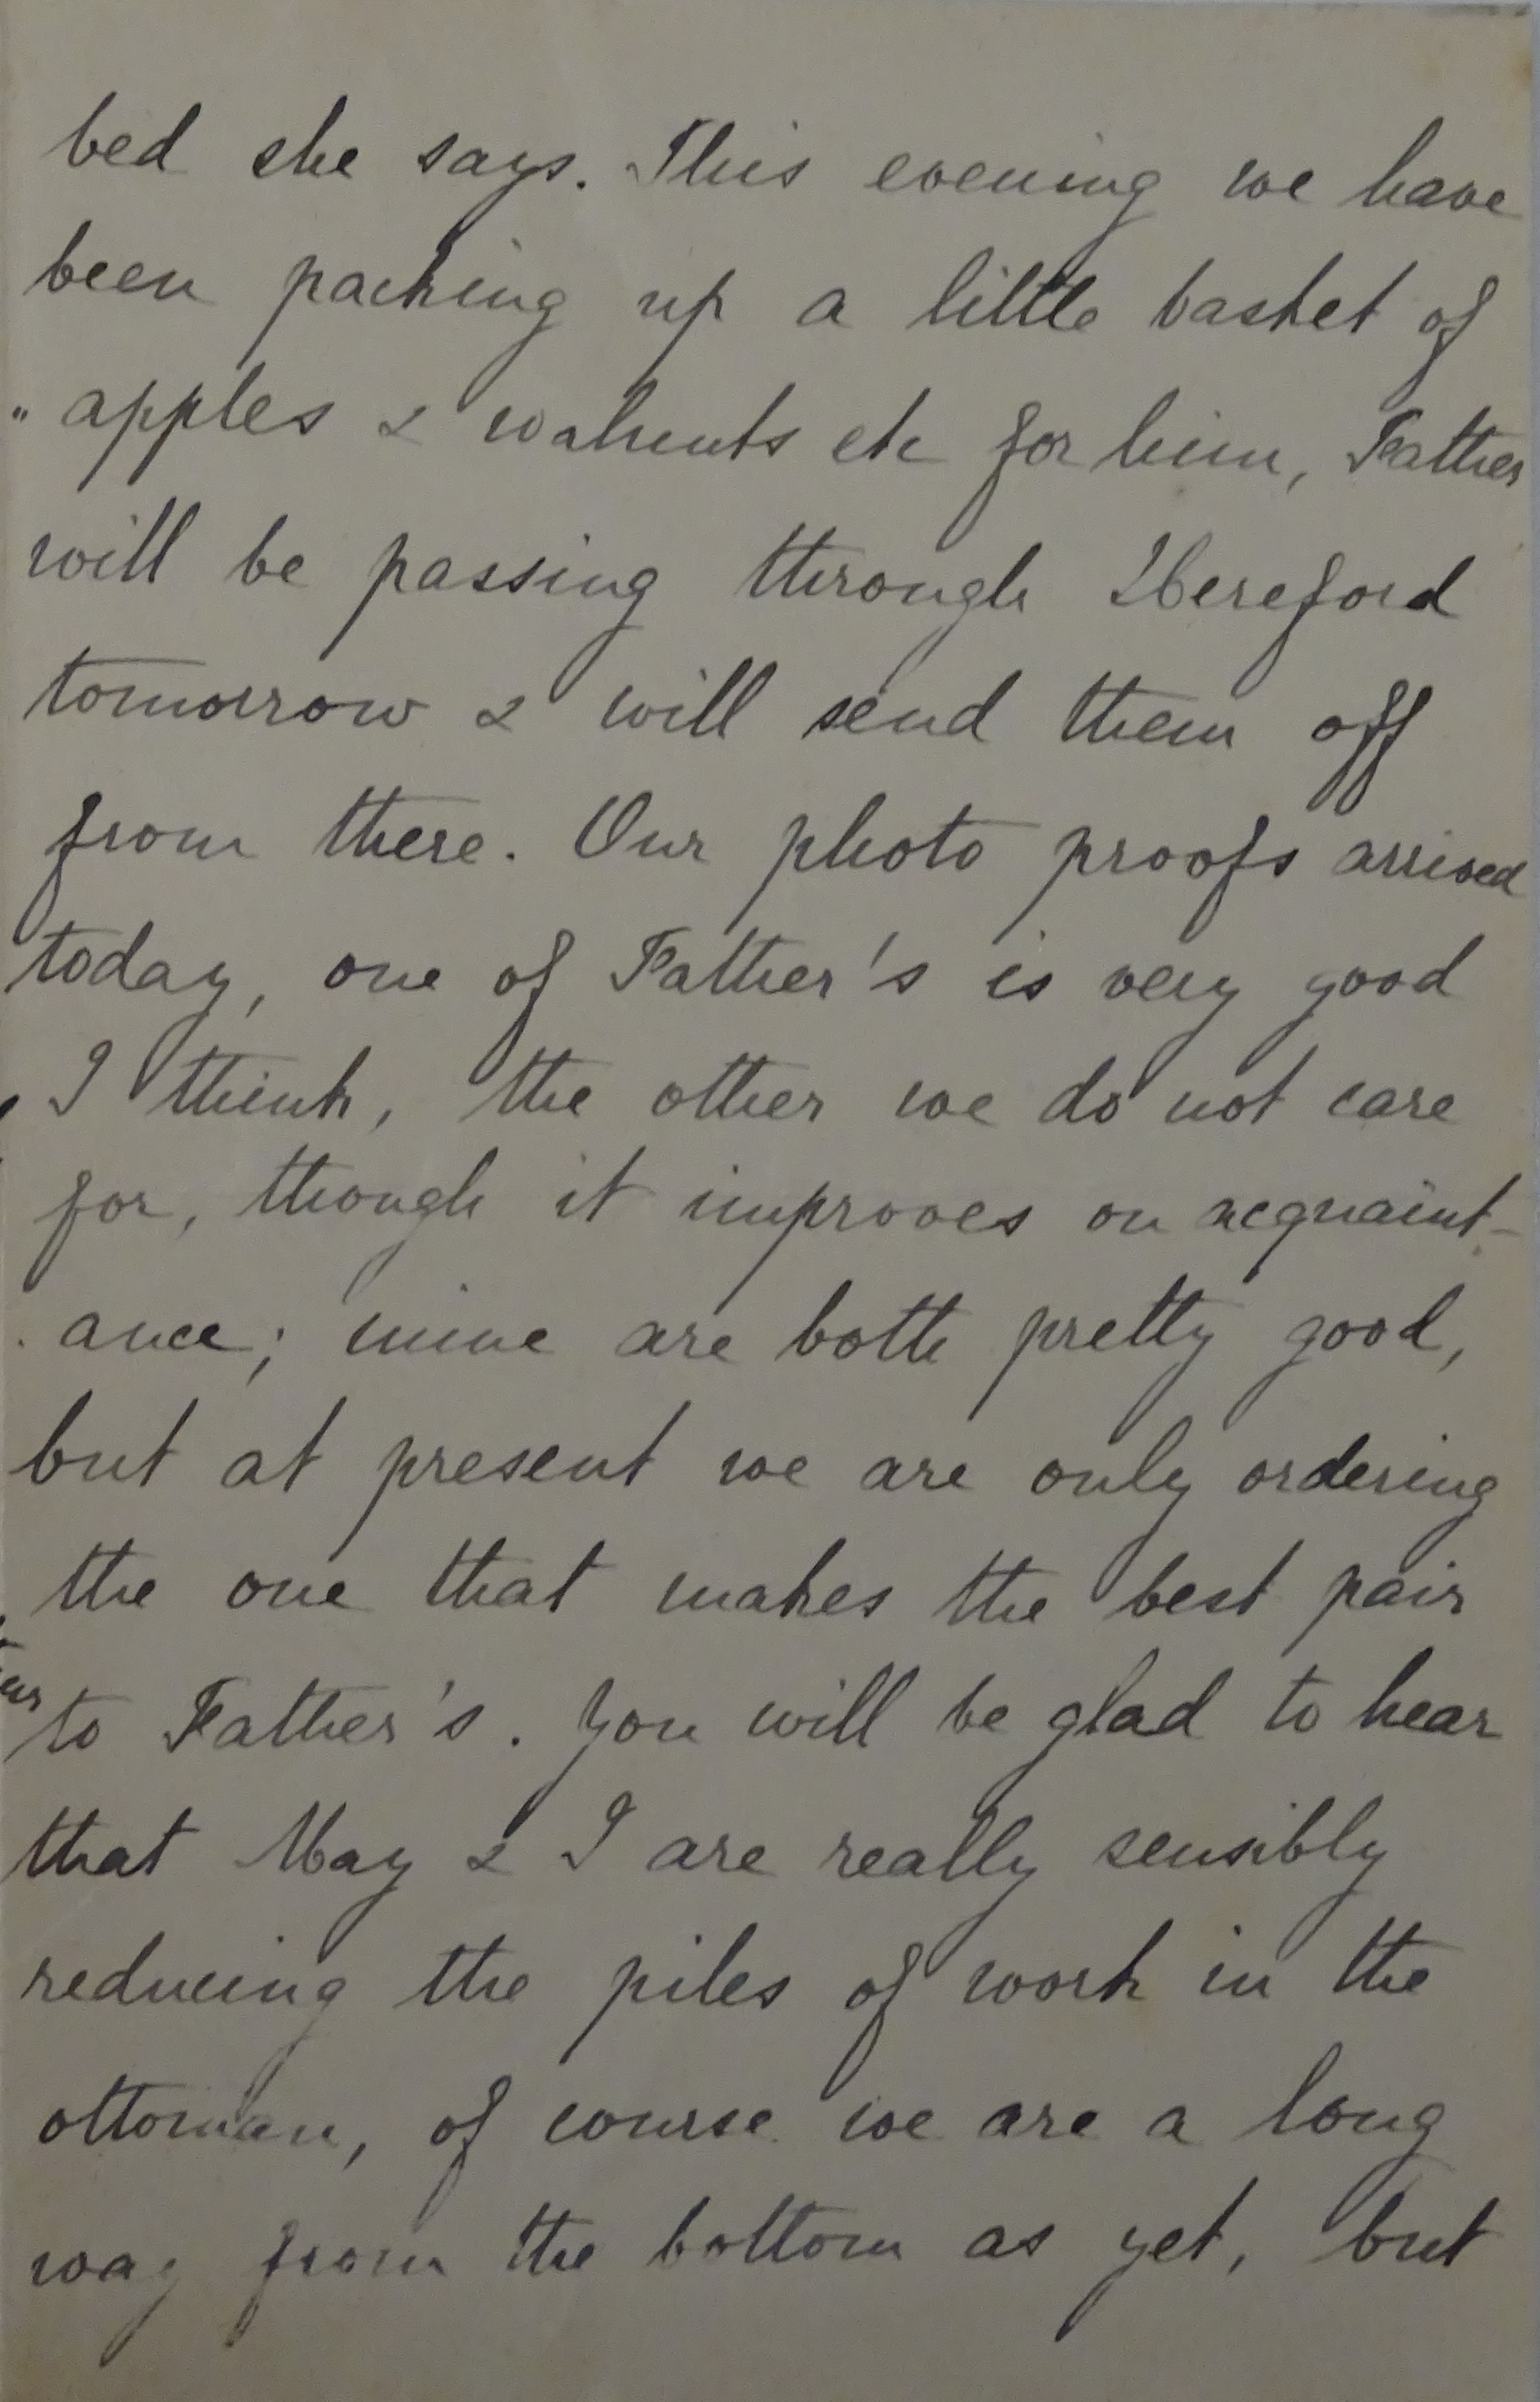 bed she says. This evening we have
been packing up a little basket of
apples & walnuts etc for him, Father
will be passing through Hereford
tomorrow & will send them off
from there. Our photo proofs arrived
today, one of Father's is very good
I think, the other we do not care
for, though it improves on acquaint-
ance; mine are both pretty good,
but at present we are only ordering
the one that makes the best pair
to Father's. You will be glad to hear
that May & I are really sensibly
reducing the piles of work in the
ottoman, of course we are a long
way from the bottom as yet, but